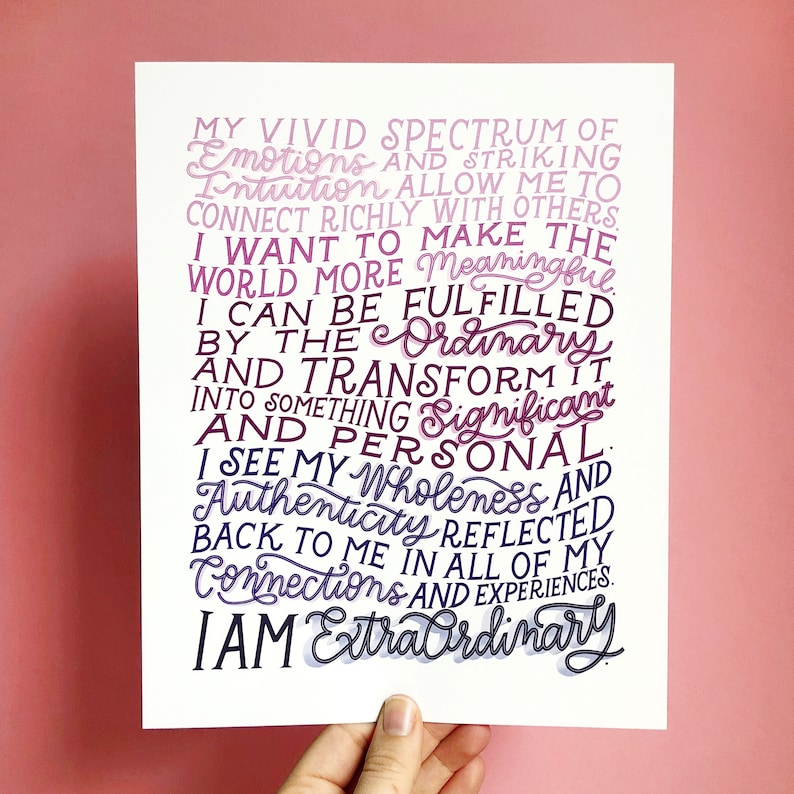 MY VIVID SPECTRUM OF
Emotions AND STRIKING
Intuition ALLOW ME TO
CONNECT RICHLY WITH OTHERS.
I WANT TO MAKE THE
WORLD MORE Meaningful.
I CAN BE FULFILLED
BY THE Ordinary
AND TRANSFORM IT
INTO SOMETHING Significant
AND PERSONAL.
I SEE MY Wholeness AND
Authenticity REFLECTED
BACK TO ME IN ALL OF MY
Connections AND EXPERIENCES.
I AM ExtraOrdinary.